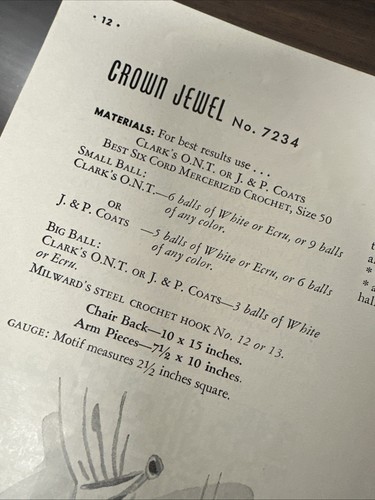 • 12 •
CROWN JEWEL No. 7234
MATERIALS: For best results use . . .
CLARK'S O.N.T. OR J. & P. COATS
BEST SIX CORD MERCERIZED CROCHET, Size 50
SMALL BALL:
CLARK'S O.N.T.—6 balls of White or Ecru, or 9 balls
of any color.
OR
J. & P. COATS —5 balls of White or Ecru, or 6 balls
of any color.
BIG BALL:
CLARK'S O.N.T. OR J. & P. COATS—3 balls of White
or Ecru.
MILWARD'S STEEL CROCHET HOOK No. 12 or 13.
Chair Back—10 x 15 inches.
Arm Pieces—7½ x 10 inches.
GAUGE: Motif measures 2½ inches square.